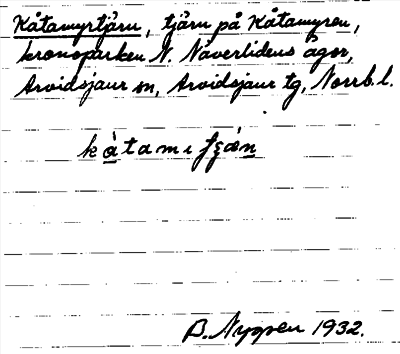 Kåtamyrtjärn, tjärn på Kåtamyren,
kronoparken N. Näverlidens ägor,
Arvidsjaur sn, Arvidsjaur tg, Norrb. l.
B. Nygren 1932.